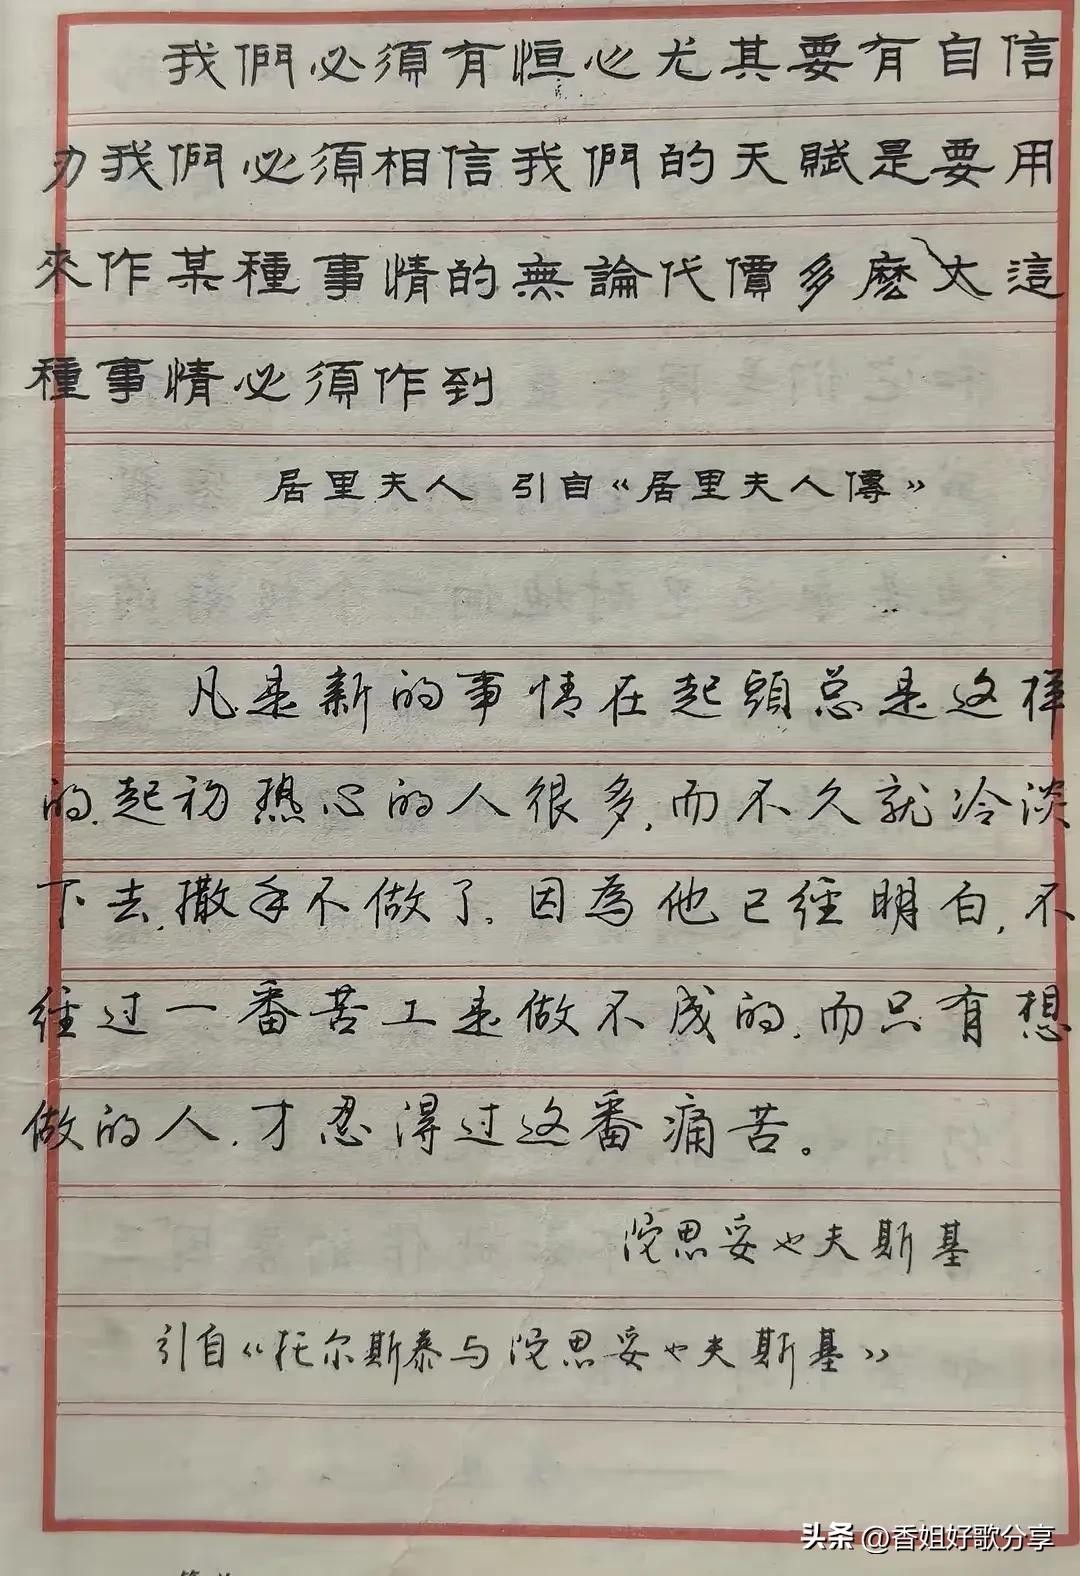 我們必須有恒心尤其要有自信
力我們必須相信我們的天賦是要用
來作某種事情的無論代價多麽大這
種事情必須作到
居里夫人 引自《居里夫人傳》
凡是新的事情在起頭总是这样
的.起初热心的人很多,而不久就冷淡
下去,撒手不做了.因為他已經明白,不
经过一番苦工是做不成的.而只有想
做的人.才忍得过这番痛苦。
陀思妥也夫斯基
引自《托尔斯泰与陀思妥也夫斯基》
头条 @香姐好歌分享